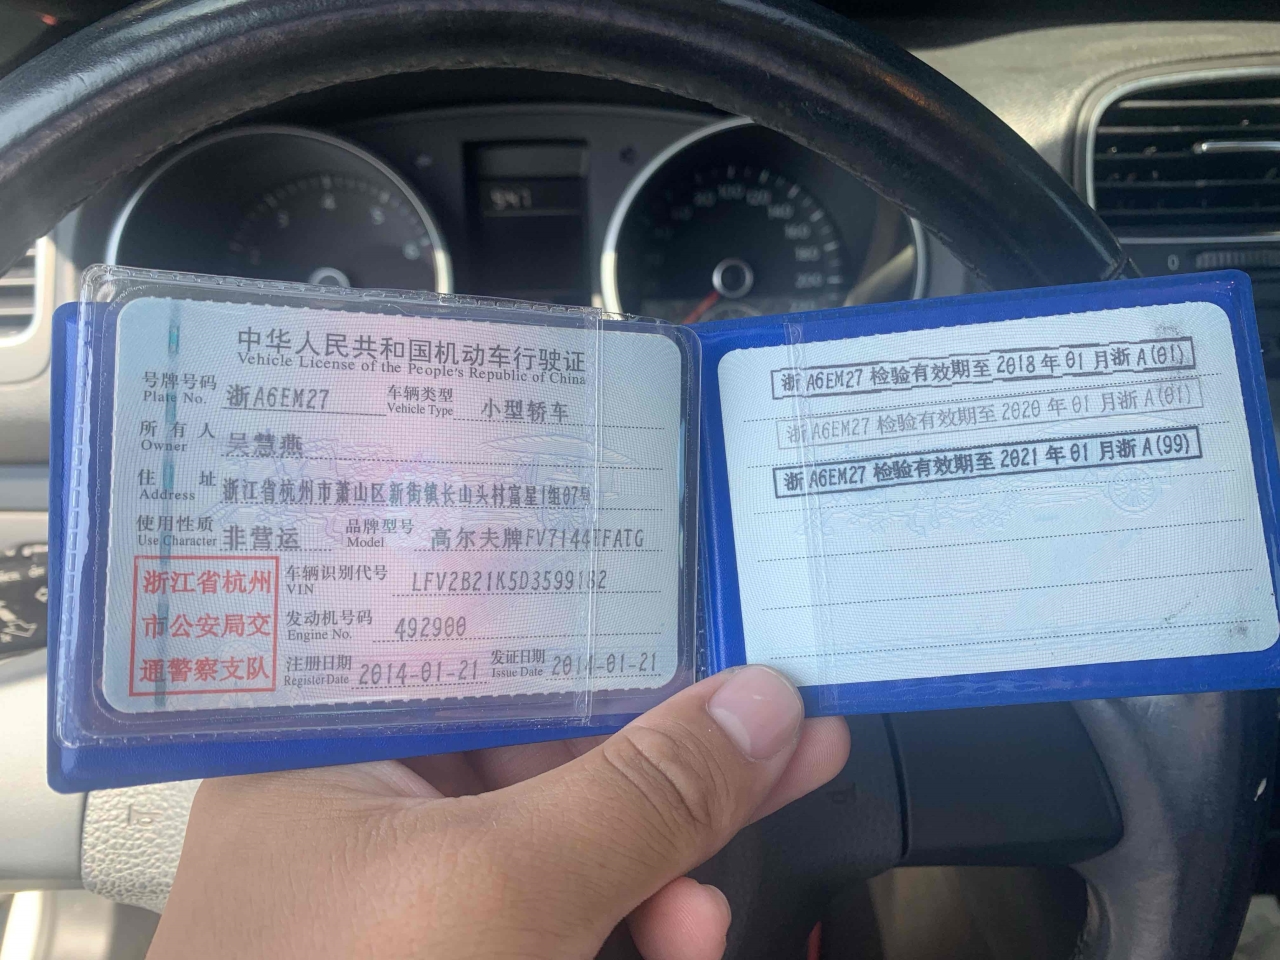 中华人民共和国机动车行驶证
Vehicle License of the People's Republic of China
号牌号码 浙A6EM27 车辆类型 小型轿车
Plate No. Vehicle Type
所有人 吴慧燕
Owner
住址 浙江省杭州市萧山区新街镇长山头村富星1组07号
Address
使用性质 非营运 品牌型号 高尔夫牌FV7144TFATG
Use Character Model
浙江省杭州
市公安局交
通警察支队
车辆识别代号 LFV2B21K5D3599182
VIN
发动机号码 492900
Engine No.
注册日期 2014-01-21 发证日期 2014-01-21
Register Date Issue Date
浙A6EM27 检验有效期至 2018年01月浙A(01)
浙A6EM27 检验有效期至 2020年01月浙A(01)
浙A6EM27 检验有效期至 2021年01月浙A(99)
3 4 5 6
80 100 120 140 160 180 200
947
0